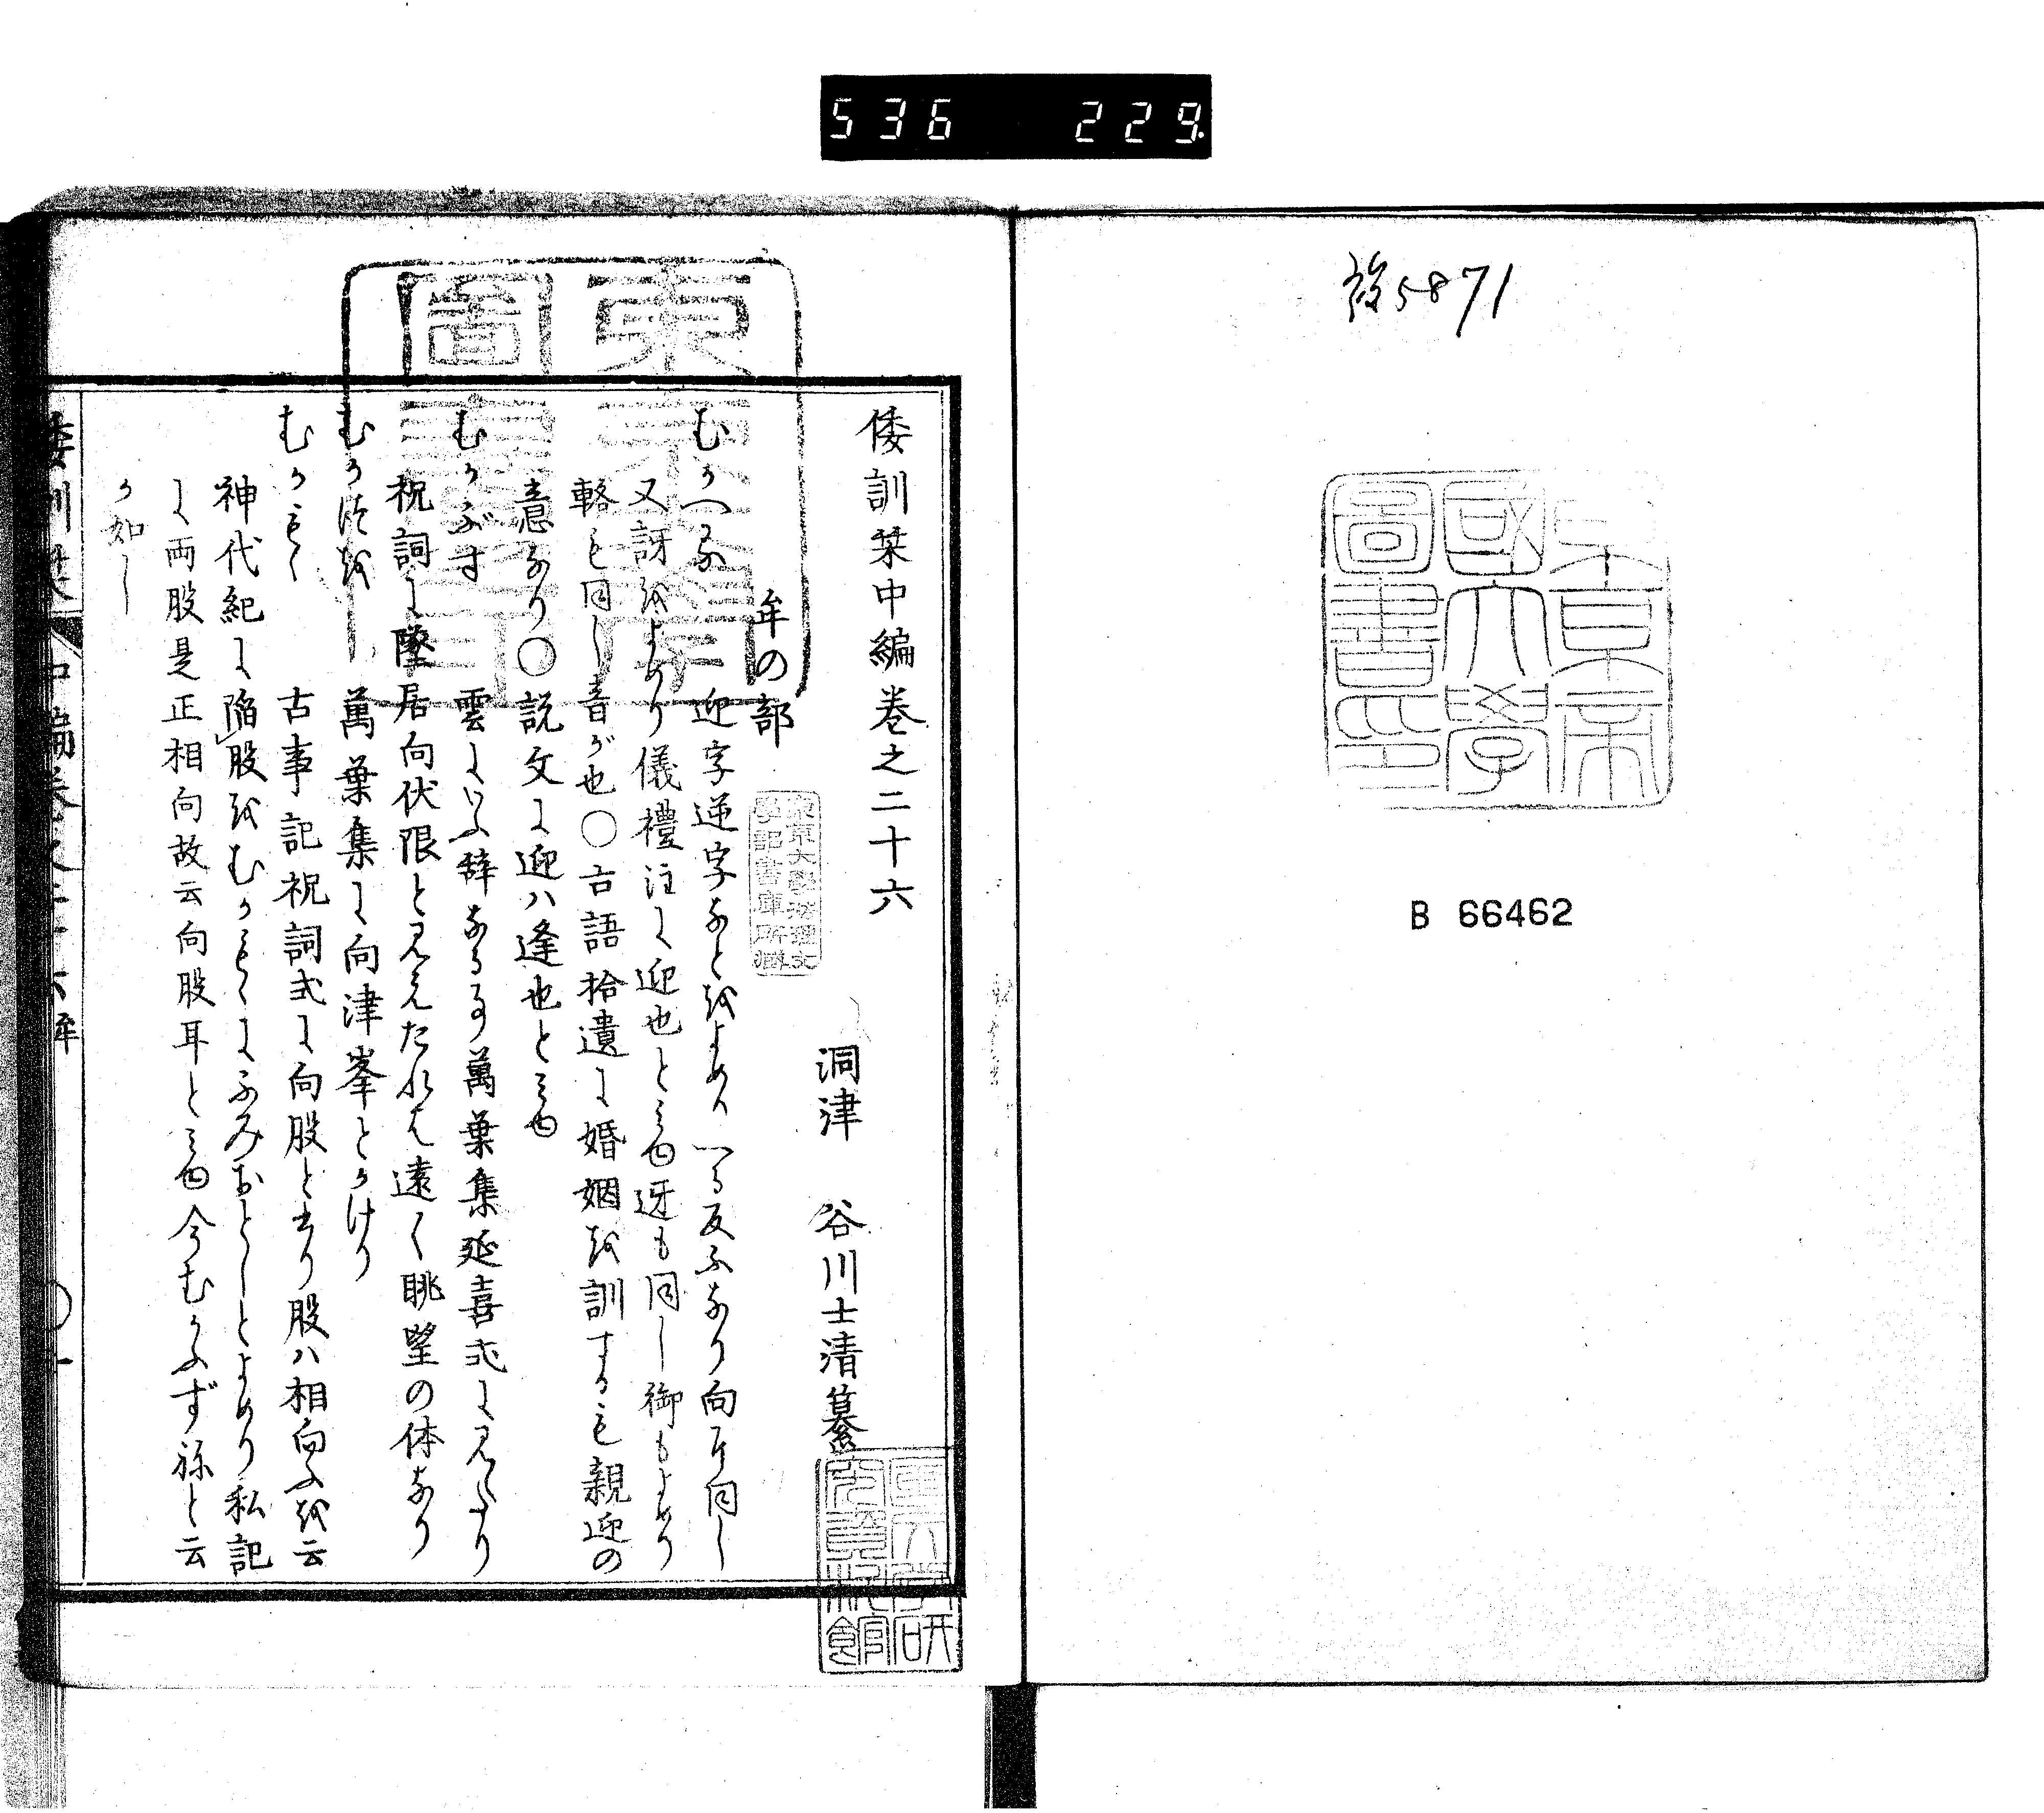 536 229
設5871
東京帝國大學圖書印
B 66462
倭訓栞中編巻之二十六
洞津 谷川士清纂
牟の部
むかへる 迎字逆字なとをよめり いる反ふなり向へ同し
又訝をよめり儀禮注に迎也とみゆ迓も同し御もよめり
輅も同し音が也○古語拾遺に婚姻を訓するも親迎の
意なり○説文に迎ハ逢也とみゆ
むかぶす 雲にいふ辞なる事萬葉集延喜式に見えたり
祝詞に墜居向伏限と見えたれは遠く眺望の体なり
むかつを 萬葉集に向津峯とかけり
むかもゝ 古事記祝詞式に向股と書り股ハ相向ふを云
神代紀に陥股をむかもゝにふみおとしとよめり私記
に両股是正相向故云向股耳とみゆ今むかふずねと云
か如し
東京大學法理文學部書庫所藏